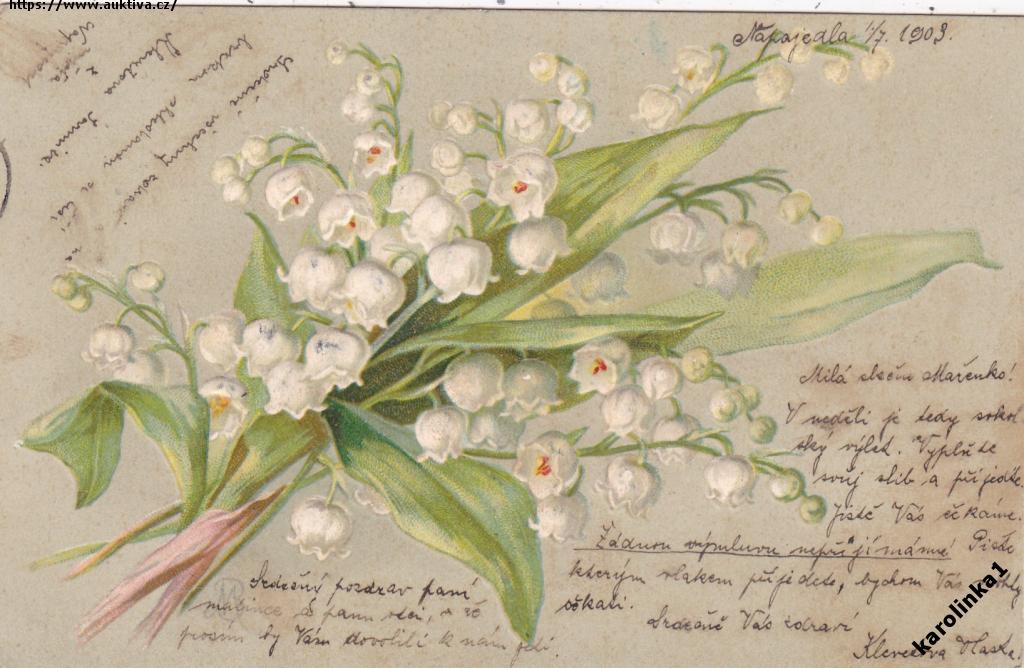 https://www.auktiva.cz/
Napajedla 1/7. 1903.
Milá slečno Mařenko!
V neděli je tedy sokol-
ský výlet. Vyplňte
svůj slib a přijeďte.
Jistě Vás čekáme.
Žádnou výmluvu nepřijímáme! Pište
kterým vlakem přijedete, bychom Vás mohly
očkati.
Srdečně Vás zdraví
Vlasta.
Srdečný pozdrav paní
matince a panu otci, a že
prosím by Vám dovolili k nám jeti.
Srdečně všechny zdraví
karolinka1